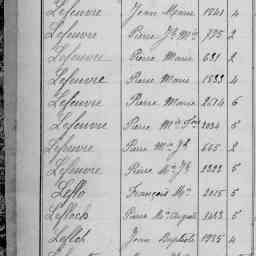 Lefeuvre Jean Marie 1541 4
Lefeuvre Pierre Jh Mie 775 2
Lefeuvre Pierre Marie 631 2
Lefeuvre Pierre Marie 1533 4
Lefeuvre Pierre Marie 2614 6
Lefeuvre Pierre Mie 2034 5
Lefeuvre Pierre Mie Jh 665 2
Lefeuvre Pierre Mie Jh 2323 5
Leffo François Mie 2015 5
Lefloch Pierre Mie Auguste 2483 5
Lefloh Jean Baptiste 1935 4